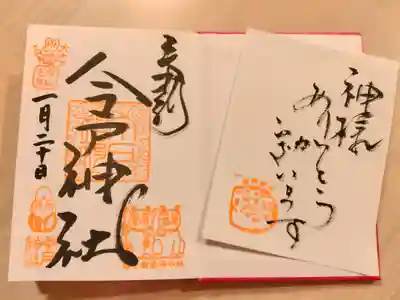 奉拝
今戸神社
一月二十日
神様
ありがとう
ございます